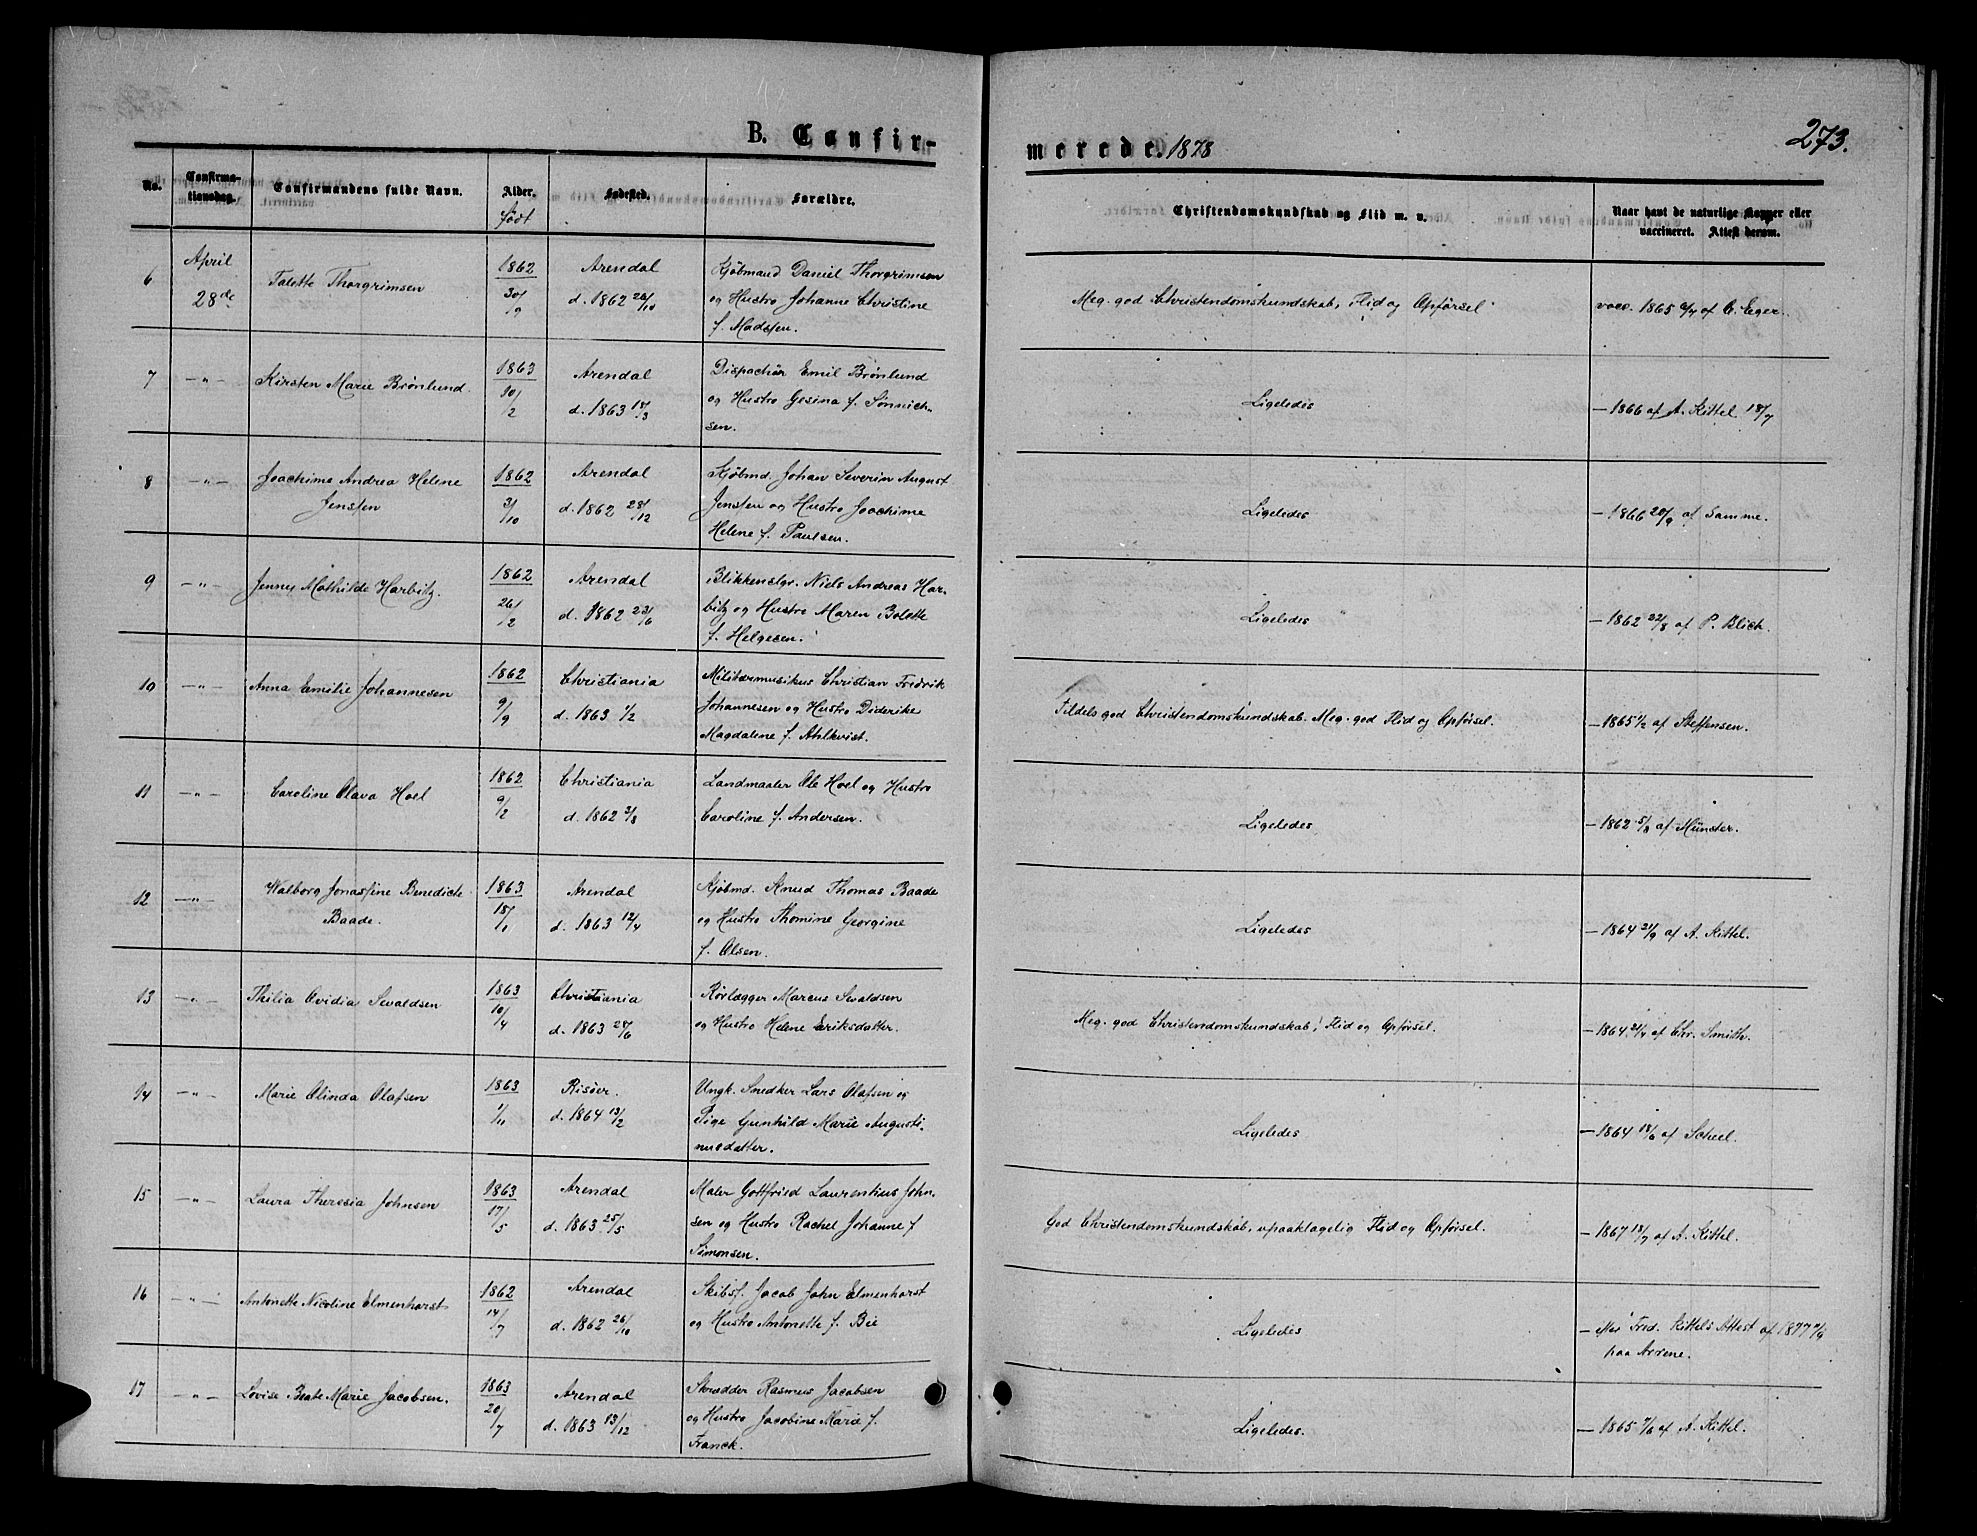 B. Confir-
merede. 1878
273.
No.
Confirma-
tionsdag.
Confirmandens fulde Navn.
Alder.
født
Fødested.
Forældre.
Christendomskundskab og Flid m. v.
Naar havt de naturlige Kopper eller
vaccineret. Attest derom.
6
April
28de
Talette Thorgrimsen
1862
30/9
Arendal
d. 1862 26/10
Kjøbmand Daniel Thorgrimsen
og Hustro Johanne Christine
f. Madssen.
Meg. god Christendomskundskab, Flid og Opførsel
vacc. 1865 af C. Eger.
7
— " —
Kirsten Marie Brønlund.
1863
10/2
Arendal
d. 1863 18/3
Dispachør Emil Brønlund
og Hustro Gesina f. Sønnich-
sen.
Ligeledes
— 1866 af A. Kittel 18/7
8
— " —
Joachime Andrea Helene
Jensten
1862
3/10
Arendal
d. 1862 28/12
Kjøbmd. Johan Severin August
Jensten og Hustro Joachime
Helene f. Paulsen.
Ligeledes
— 1866 20/9 af Samme.
9
— " —
Jenny Mathilde Harbitz.
1862
26/2
Arendal
d. 1862 23/6
Blikkenslgr. Niels Andreas Har-
bitz og Hustro Maren Bolette
f. Helgesen.
Ligeledes
— 1862 22/8 af P. Blich.
10
— " —
Anna Emilie Johannesen
1862
9/9
Christiania
d. 1863 1/2
Militærmusikus Christian Fredrik
Johannesen og Hustro Diderike
Magdaline f. Ahlkvist.
Tildels god Christendomskundskab. Meg. god Flid og Opførsel.
— 1865 1/2 af Steffensen.
11
— " —
Caroline Olava Hoel
1862
9/2
Christiania
d. 1862 3/8
Landmaaler Ole Hoel og Hustro
Caroline f. Andersen.
Ligeledes
— 1862 5/9 af Münster.
12
— " —
Walborg Jonassine Benedicte
Baade.
1863
15/1
Arendal
d. 1863 12/4
Kjøbmd. Knud Thomas Baade
og Hustro Thomine Georgine
f. Olsen.
Ligeledes
— 1864 21/9 af A. Kittel.
13
— " —
Thilia Ovidia Sevaldsen
1863
10/4
Christiania
d. 1863 24/6
Rørlægger Marcus Sevaldsen
og Hustro Helene Eriksdatter.
Meg. god Christendomskundskab, Flid og Opførsel.
— 1864 21/4 af Chr. Smith.
14
— " —
Marie Olinda Olafsen
1863
1/11
Risøer.
d. 1864 13/2
Ungk. Snedker Lars Olafsen og
Pige Gunhild Marie Augusti-
nusdatter.
Ligeledes
— 1864 14/6 af Scheel.
15
— " —
Laura Theresia Johnsen
1863
17/5
Arendal
d. 1863 25/5
Maler Gottfried Laurentius John-
sen og Hustro Rachel Johanne f.
Simonsen.
God Christendomskundskab, upaaklagelig Flid og Opførsel.
— 1867 13/7 af A. Kittel.
16
— " —
Antonette Nicoline Elmenhorst
1862
14/7
Arendal
d. 1862 26/10
Skibsf. Jacob John Elmenhorst
og Hustro Antonette f. Bie
Ligeledes
— Fred. Kittels Attest af 1877
paa Arrene.
17
— " —
Lovise Beate Marie Jacobsen.
1863
20/7
Arendal
d. 1863 13/12
Skrædder Rasmus Jacobsen
og Hustro Jacobine Marie f.
Franck.
Ligeledes.
— 1865 7/6 af A. Kittel.